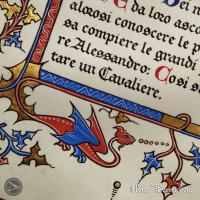 Dei n
E da loro asco
alorosi conoscere le p
sa compiere le grandi
re Alessandro: Così s
tare un Cavaliere.